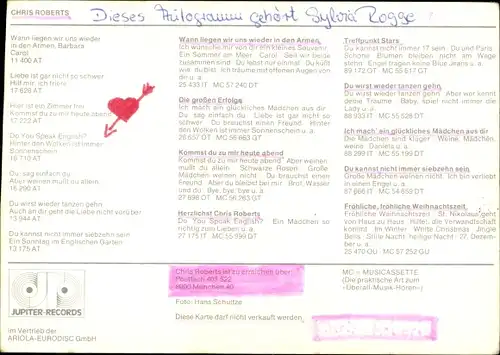 CHRIS ROBERTS
Dieses Autogramm gehört Sylvia Rogge
Wann liegen wir uns wieder
in den Armen, Barbara
Carol
11 400 AT
Liebe ist gar nicht so schwer
Hilf mir, ich friere
17 628 AT
Hier ist ein Zimmer frei
Kommst du zu mir heute abend
17 222 AT
Do You Speak English?
Hinter den Wolken ist immer
Sonnenschein
16 710 AT
Du, sag einfach du
Aber weinen mußt du allein
16 290 AT
Du wirst wieder tanzen gehn
Auch an dir geht die Liebe nicht vorüber
15 944 AT
Du kannst nicht immer siebzehn sein
Ein Sonntag im Englischen Garten
13 175 AT
Wann liegen wir uns wieder in den Armen,
Ich wünsche mir von dir ein kleines Souvenir.
Ein Sommer am Meer. Carol. Seit wir beide
zusammen sind. Du hast nur einmal. Du küßt
wie du bist. Ich träume mit offenen Augen von
dir u.a.
25 433 IT MC 57 240 DT
Die großen Erfolge
Ich mach' ein glückliches Mädchen aus dir
Du sag einfach du. Liebe ist gar nicht so
schwer. Du brauchst einen Freund. Hinter
den Wolken ist immer Sonnenschein u.a.
28 657 OT MC 56 663 GT
Kommst du zu mir heute abend
Kommst du zu mir heute abend. Aber weinen
mußt du allein. Schwarze Rosen. Große
Mädchen weinen nicht. Du brauchst einen
Freund. Aber du bleibst bei mir. Brot, Wasser
und du. Bye, bye, bye u.a.
27 696 OT MC 56 263 GT
Herzlichst Chris Roberts
Do You Speak English? Ein Mädchen so
richtig zum Lieben u.a.
27 175 IT MC 55 999 DT
Treffpunkt Stars
Du kannst nicht immer 17 sein. Du und Paris.
Schöne Blumen bleiben nicht am Wege
stehn. Engel tragen keine Blue Jeans u.a.
89 172 GT MC 55 617 GT
Du wirst wieder tanzen gehn
Du wirst wieder tanzen gehn. Aber wer kennt
deine Träume. Baby, spiel nicht immer die
Lady u.a.
88 933 IT MC 55 528 DT
Ich mach' ein glückliches Mädchen aus dir
Die Mädchen sind klüger. Weine, Mädchen
weine. Daniela u.a.
88 299 IT MC 55 199 DT
Du kannst nicht immer siebzehn sein
Große Mädchen weinen nicht. Ich bin verliebt
in einen Engel u.a.
87 966 IT MC 54 857 DT
Fröhliche, fröhliche Weihnachtszeit
Fröhliche Weihnachtszeit. St. Nikolaus geht
von Haus zu Haus. Hüttet, die Verwandtschaft
kommt. Im Winter. White Christmas. Jingle
Bells. Stille Nacht, heilige Nacht. 27. Dezem-
ber u.a.
25 470 OU MC 57 252 GU
JUPITER-RECORDS
Im Vertrieb der
ARIOLA-EURODISC GmbH
Chris Roberts ist zu erreichen über:
Postfach 403 522
8000 München 40
Foto: Hans Schultze
Diese Karte darf nicht verkauft werden.
MC = MUSICASSETTE
(Die praktische Art zum
»Überall-Musik-Hören«)